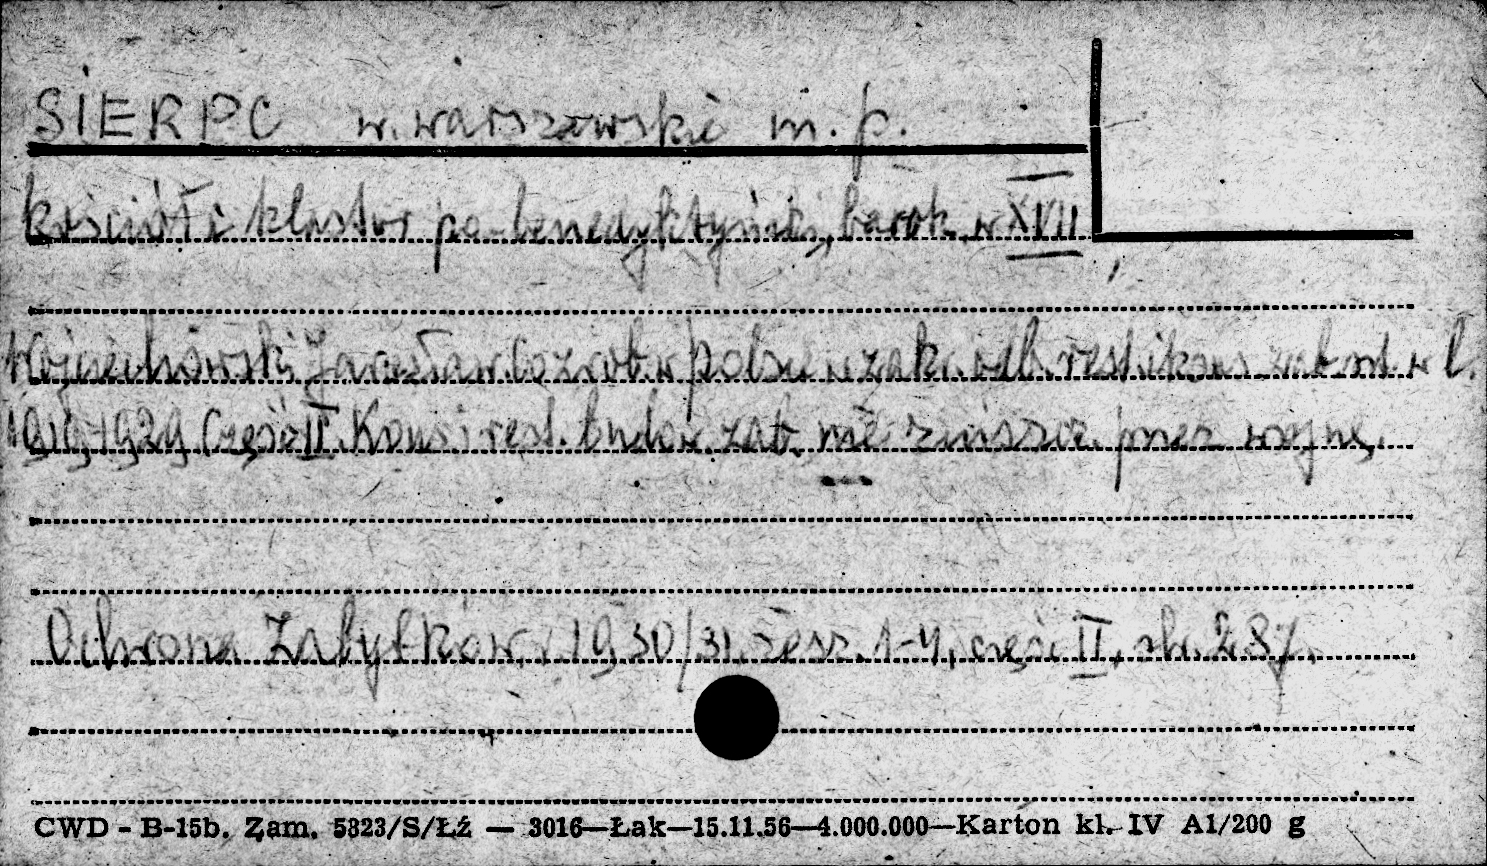 SIERPC w. warszawskie m. p.
kościół i klasztor po-benedyktyński, barok, w XVII
Wojciechowski Jarosław. Co zrob. w Polsce w zakr. odb. rest. i kons. zab. szt. w l.
1919-1929. Część II. Kons. i rest. budow. zab. nie zniszcz. przez wojnę.
Ochrona Zabytków, 1930/31, zesz. 1-4, część II, sh. 287.
CWD - B-15b. Zam. 5323/S/Łź — 3016—Łak—15.11.56—4.000.000—Karton kl. IV A1/200 g